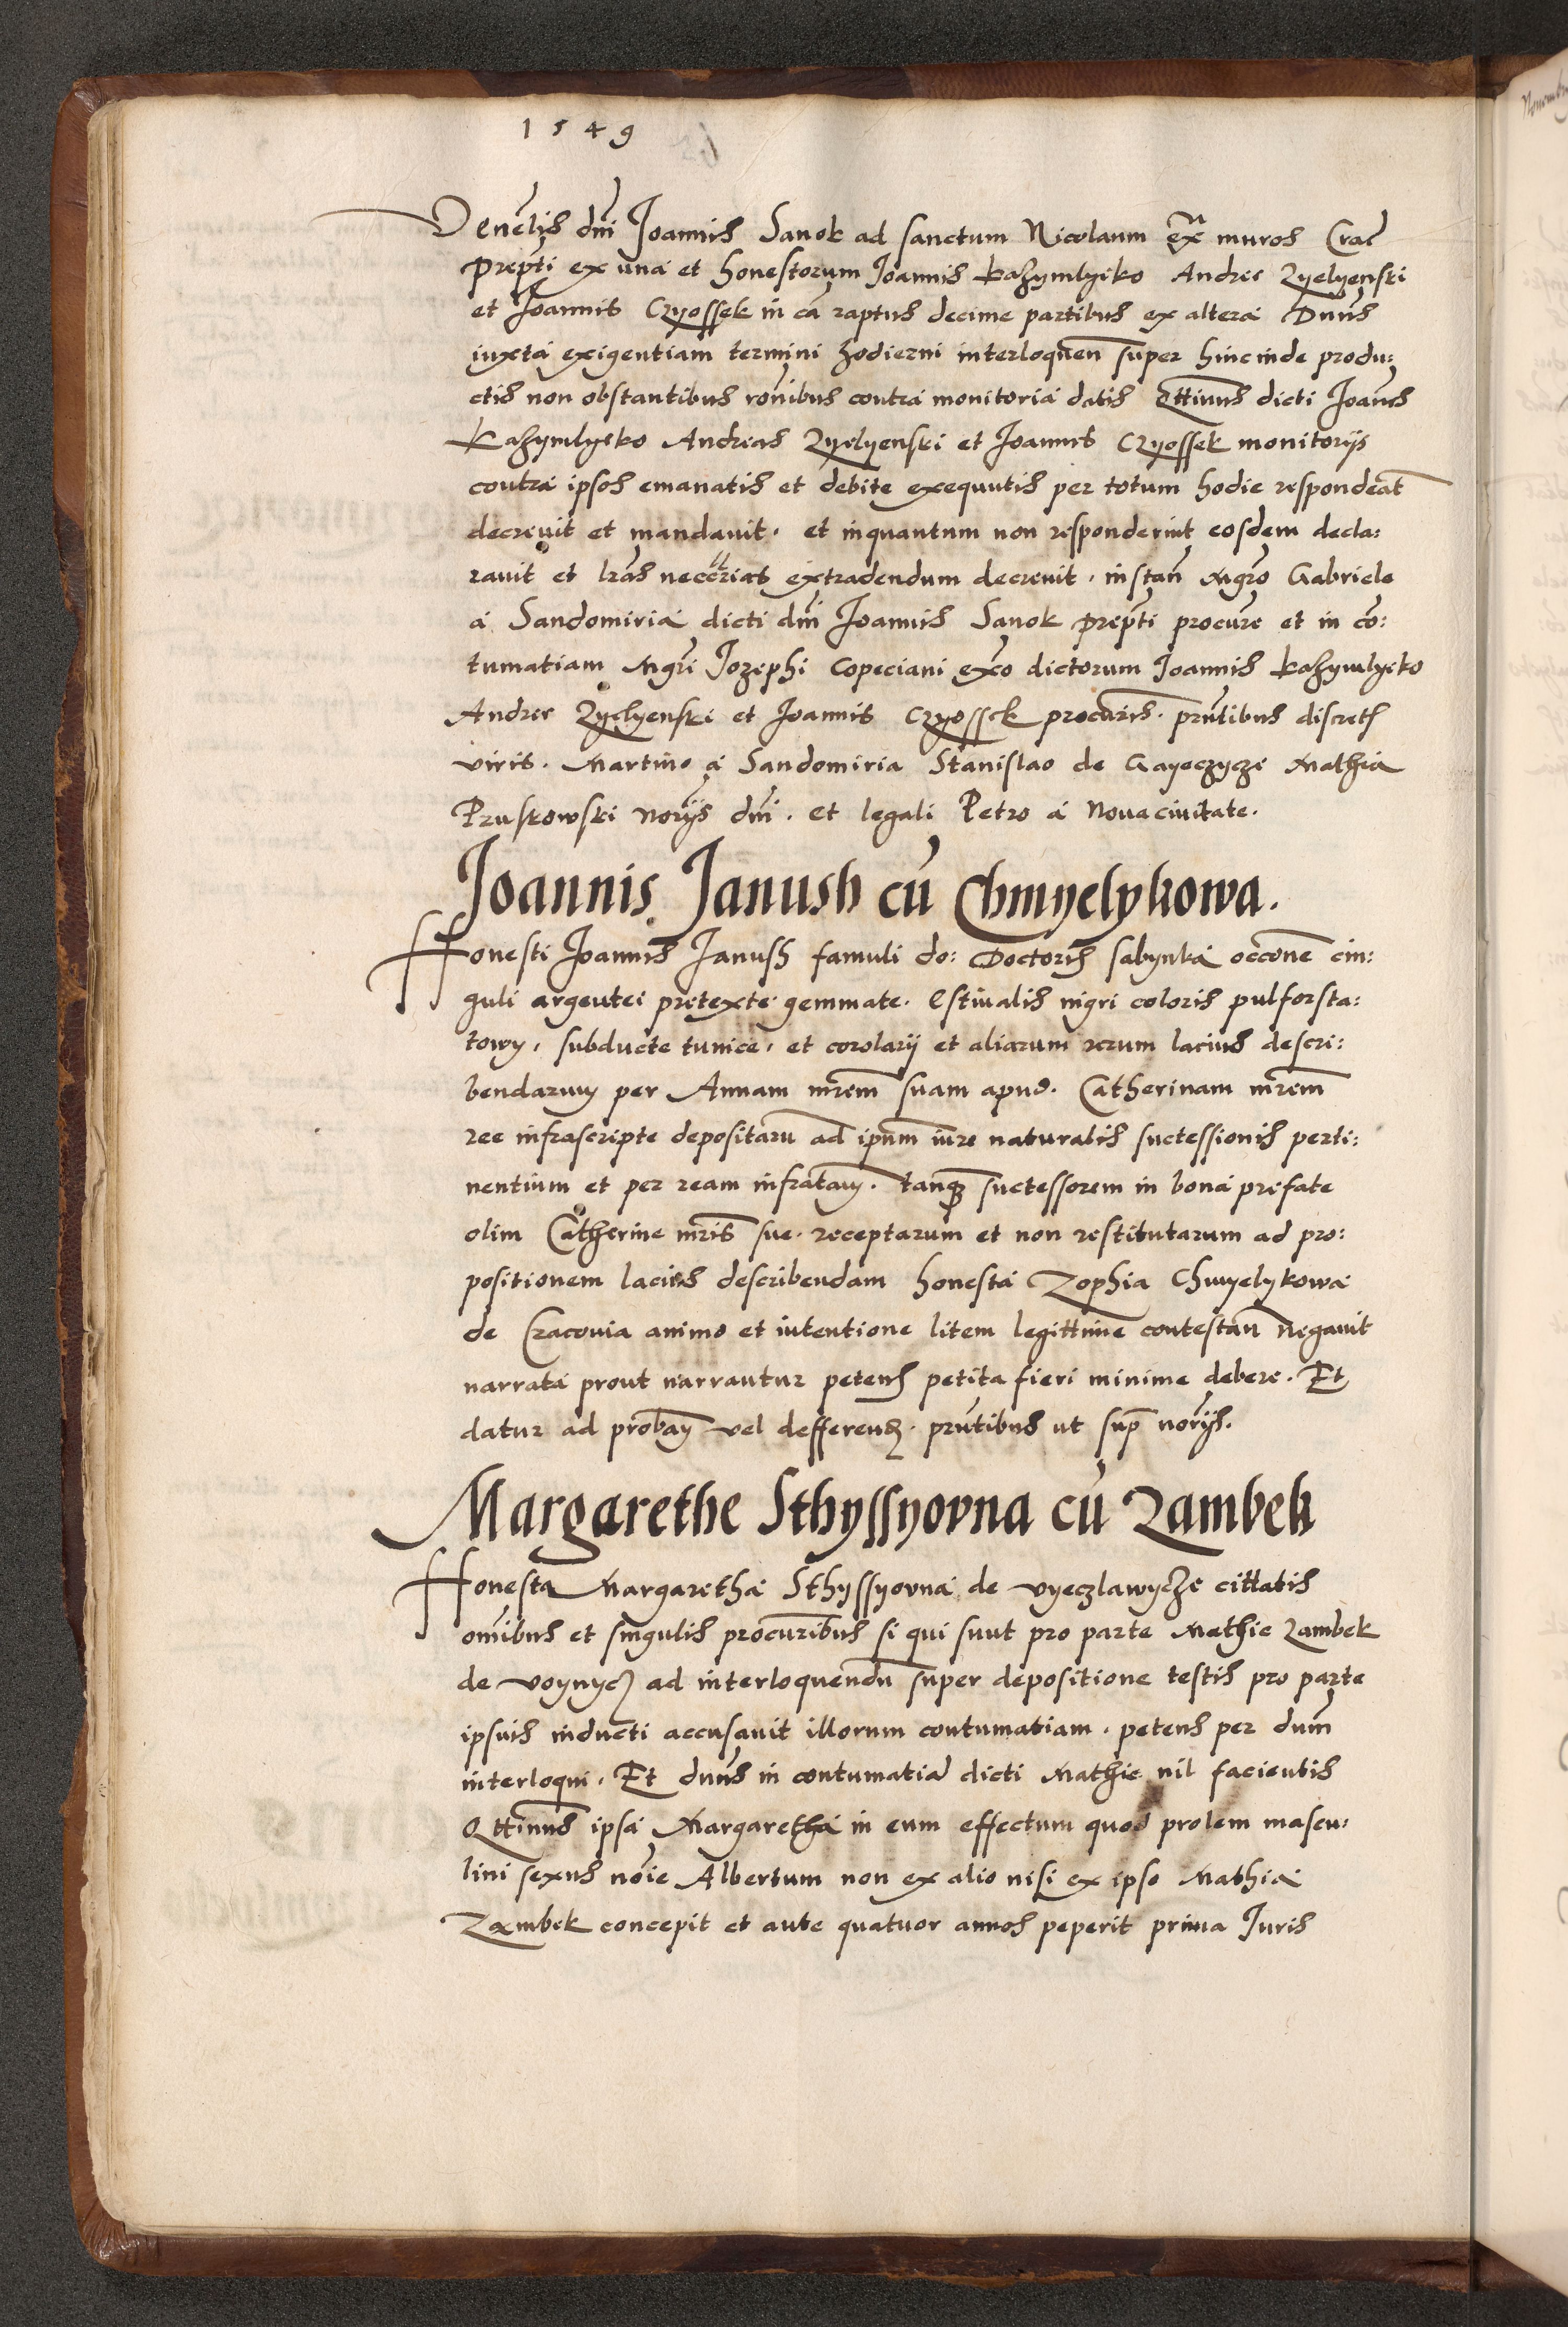 1549
Venelis dni Joannis Sanok ad sanctum Nicolaum exa muros Crac
prepti ex una et honestorum Joannis Kazymlyeko Andree Zyelyenski
et Joannis Czyossek in ca raptus decime partibus ex altera Dnus
iuxta exigentiam termini hodierni interloquen super hincinde produ:
ctis non obstantibus ronibus contra monitoria datis Qttinus dicti Joanes
Kazymlyeko Andreas Zyelyenski et Joannes Czyossek monitorijs
contra ipsos emanatis et debite exequutis per totum hodie respondeat
decrevit et mandavit. et inquantum non responderint eosdem decla:
ravit et lras necerias extradendum decrevit. instan Mgro Gabriele
a Sandomiria dicti dni Joannis Sanok prepti procure et in co:
tumatiam Mgri Jozephi Copeciani exco dictorum Joannis Kazymlyeko
Andree Zyelyenski et Joannis Czyossek procuris. prntibus discret
viris. Martino a Sandomiria Stanislao de Gayeczycze Mathia
Pruskowski noriis dni. et legali Petro a Novacivitate.
Joannis Janush cu Chmyelykowa.
Honesti Joannis Janush famuli do: Doctoris sabynka occone cin:
guli argentei pretexte gemmate. Estivalis nigri coloris pulforsta:
towy, subducte tunice, et corolarij et aliarum rerum lacius descri:
bendarum per Annam mrem suam apud. Catherinam mrem
ree infrascripte depositaru ad ipsum iure naturalis suctessionis perti:
nentium et per ream infratam. tanq suctessorem in bona prefate
olim Catherine mris sue. receptarum et non restitutarum ad pro:
positionem lacius describendam honesta Zophia Chmyelykowa
de Cracovia animo et intentione litem legittime contestan negavit
narrata prout narrantur petens petita fieri minime debere. Et
datur ad proban vel defferend. prntibus ut sup norijs.
Margarethe Sthyssyovna cu Zambek
Honesta Margaretha Sthyssyovna de vyeczlawycze cittatis
omibus et singulis procuribus si qui sunt pro parte Mathie Zambek
de voynycz ad interloquendu super depositione testis pro parte
ipsuis inducti accusavit illorum contumatiam. petens per dum
interloqui. Et dnus in contumatia dicti Mathie nil facientis
Qttinus ipsa Margaretha in eum effectum quod prolem mascu:
lini sexus noie Albertum non ex alio nisi ex ipso Mathia
Zambek concepit et ante quatuor annos peperit prima Juris